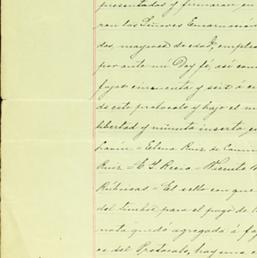 presentadas y firmaron en
ron los Señores Encarnación
dos, mayores de edad, emplea
por ante mi Doy fé, así com
fojas cincuenta y seis á ci
de este protocolo y bajo el n
libertad y minuta inserta, e
Elena Ruiz de
Ruiz - E. G. Vicente
Rúbricas - El sello con que
del timbre para el pago de l
nota quedó agregada á fo
es del Protocolo, hay una